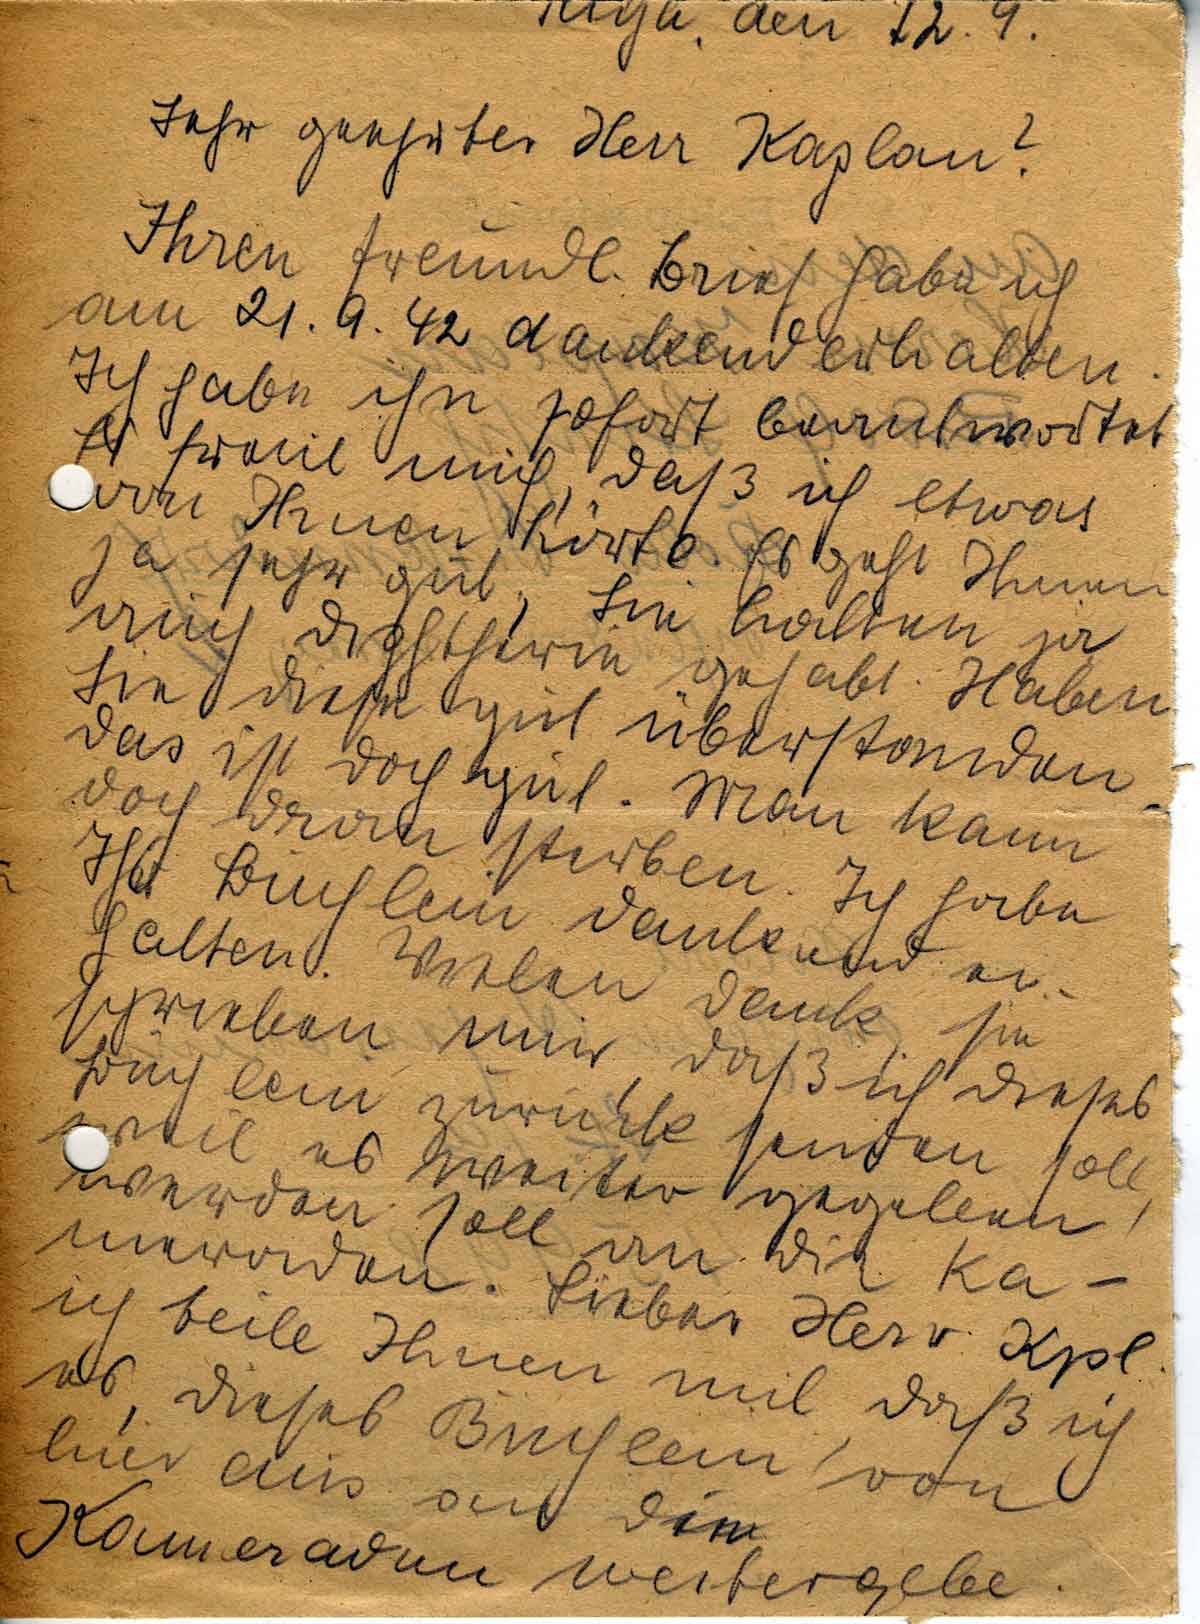 Riga, den 12. 9.
Sehr geehrter Herr Kaplan!
Ihren freundl. Brief habe ich
am 21. 9. 42 dankend erhalten.
Ich habe ihn sofort beantwortet
Es freut mich, daß ich etwas
von Ihnen hörte. Es geht Ihnen
ja sehr gut, Sie hatten ja
auch Dephtherie gehabt. Haben
Sie diese gut überstanden.
Das ist doch gut. Man kann
doch dran sterben. Ich habe
Ihr Büchlein dankend er-
halten. Vielen Dank, sie
schrieben mir, daß ich dieses
Büchlein zurück senden soll,
weil es weiter gegeben
werden soll an die Ka-
meraden. Lieber Herr Kpl.
ich teile Ihnen mit, daß ich
es, dieses Büchlein, von
hier aus an den
Kameraden weitergebe.